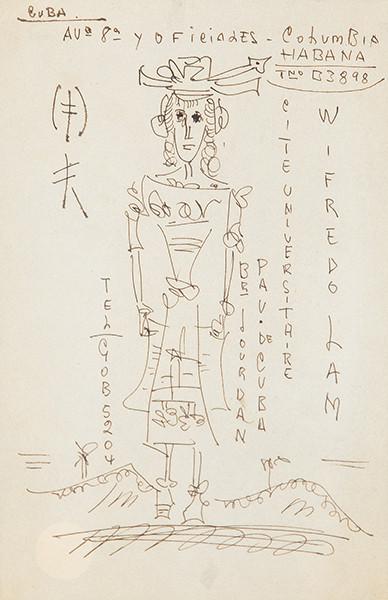 CUBA.
AVª 8ª Y OFICIALES - COLUMBIA
HABANA
TNO B3898
WIFREDO LAM
CITE UNIVERSITAIRE
PAV. DE CUBA
Bd JOURDAN
TEL GOB 5204